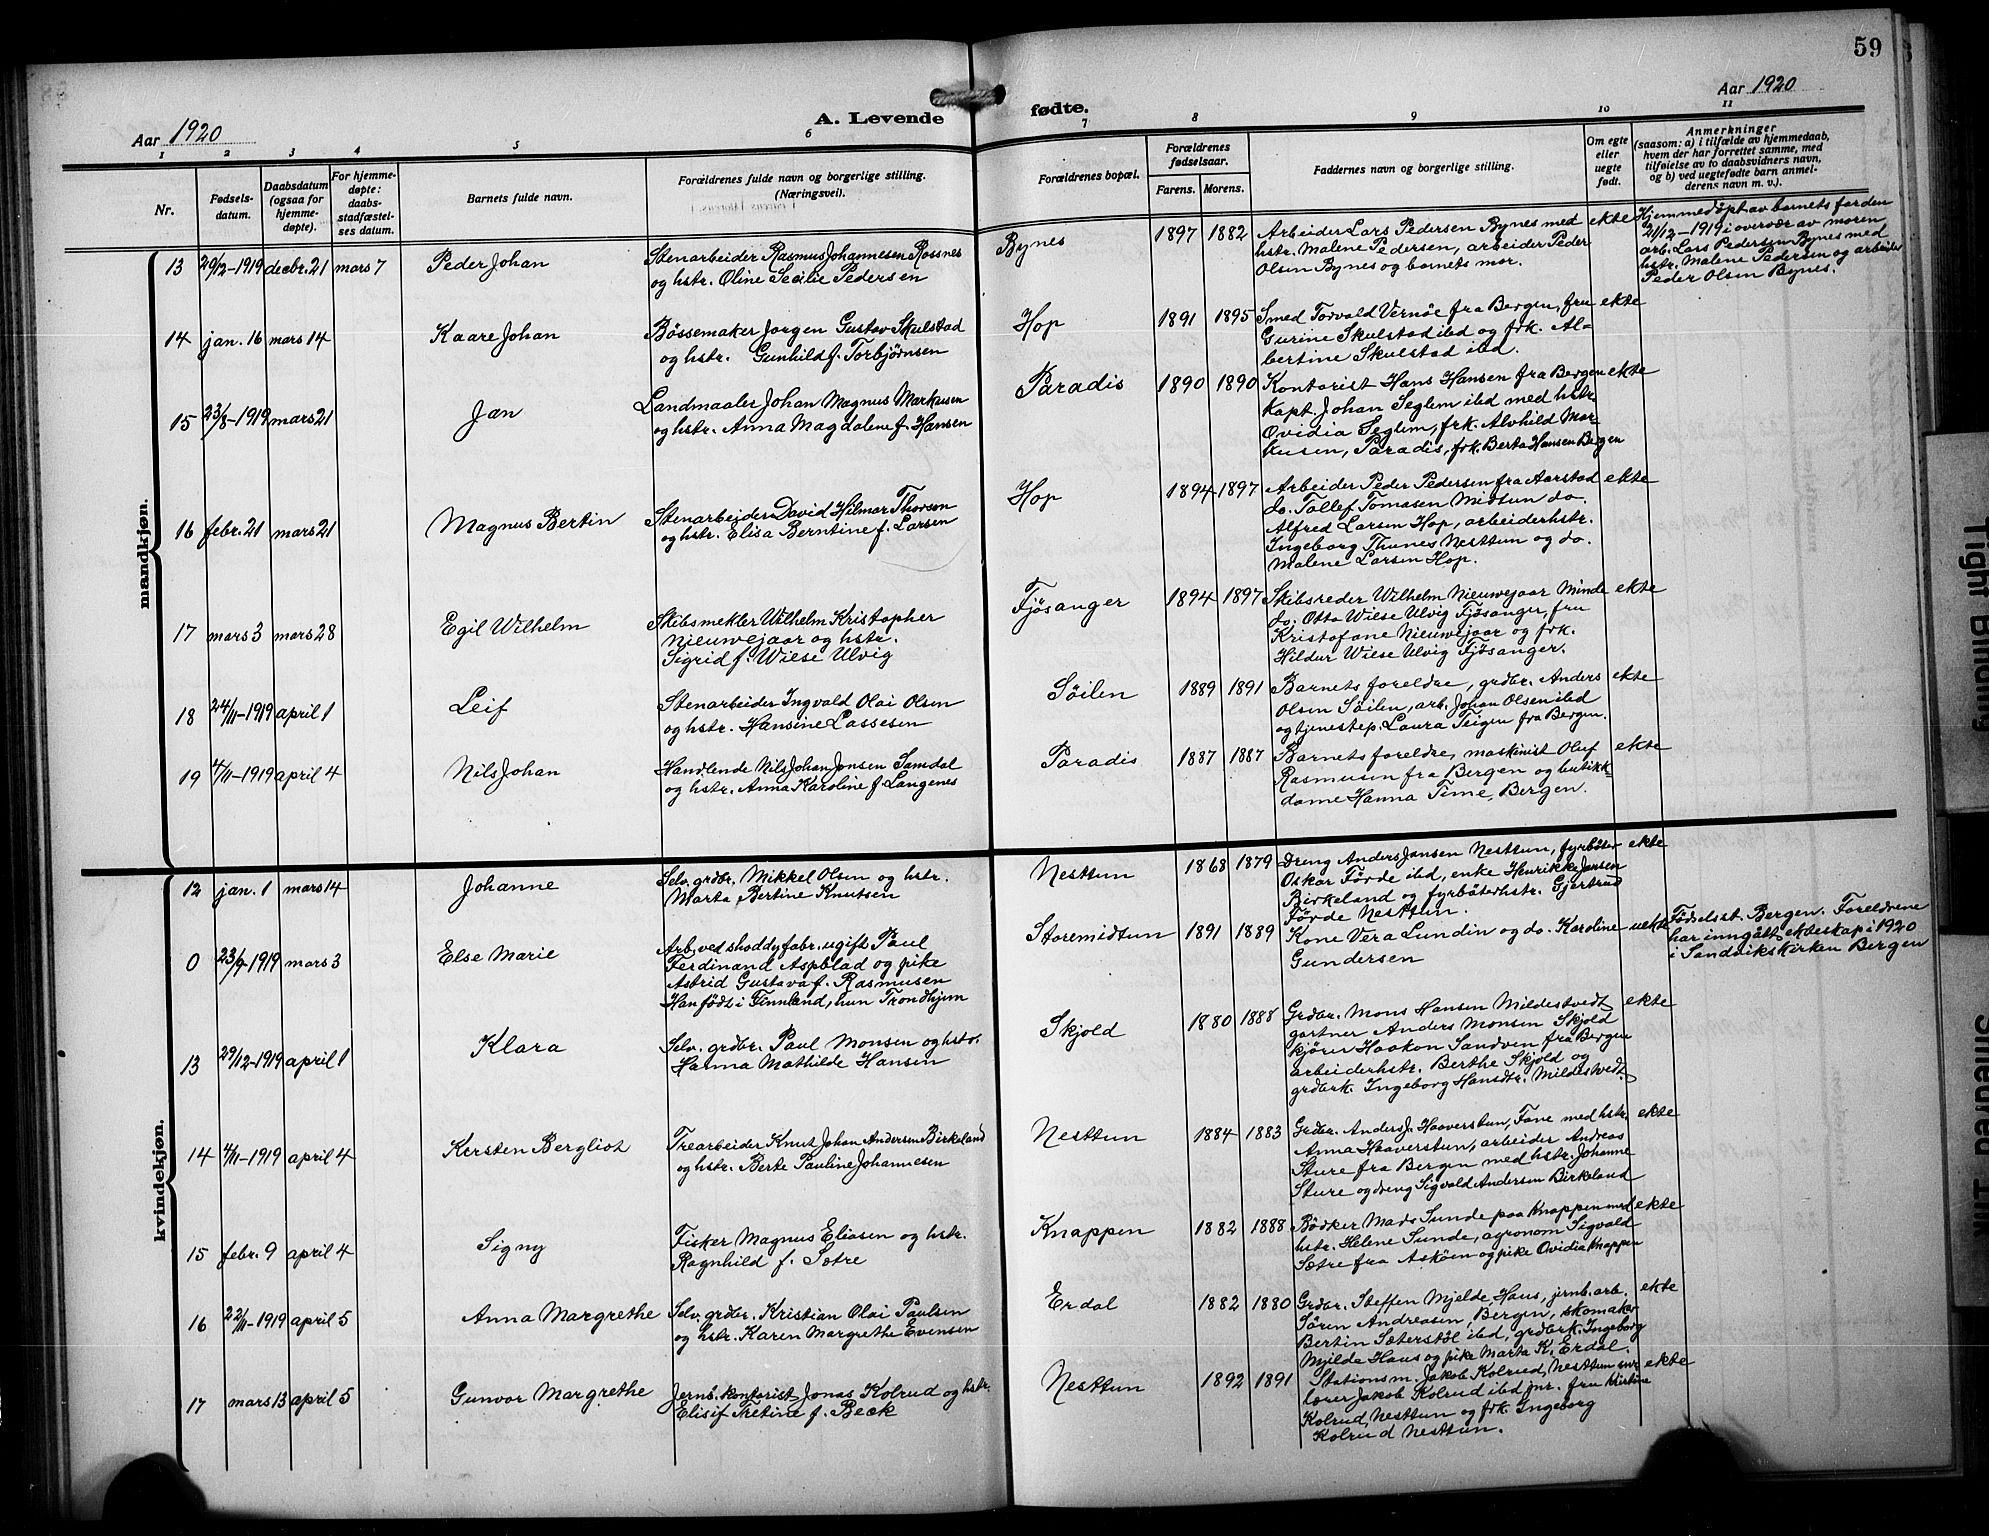 59
Aar 1920
A. Levende fødte.
Aar 1920
1 2 3 4 5 6 7 8 9 10 11
Nr.
Fødsels-
datum.
Daabsdatum
(ogsaa for
hjemme-
døpte).
For hjemme-
døpte:
daabs-
stadfæstel-
ses datum.
Barnets fulde navn.
Forældrenes fulde navn og borgerlige stilling.
(Næringsvei).
Forældrenes bopæl.
Forældrenes
fødselsaar.
Farens. Morens.
Faddernes navn og borgerlige stilling.
Om egte
eller
uegte
født.
Anmerkninger
(saasom: a) i tilfælde av hjemmedaab,
hvem der har forrettet samme, med
tilføielse av to daabsvidners navn,
og b) ved uegtefødte barn anmel-
derens navn m. v.).
mandkjøn.
13 20/12-1919 decbr. 21 mars 7 Peder Johan
Stenarbeider Rasmus Johannesen Rossnes
og hstr. Oline Secilie Pedersen
Bynes 1897 1882
Arbeider Lars Pedersen Bynes med
hstr. Malene Pedersen, arbeider Peder
Olsen Bynes og barnets mor.
ekte
Hjemmedøpt av barnets far den
21/12-1919 i overvær av moren
arb. Lars Pedersen Bynes med
hstr. Malene Pedersen og arbeider
Peder Olsen Bynes.
14 jan. 16 mars 14 Kaare Johan
Bössemaker Jørgen Gustav Skulstad
og hstr. Gunhild f. Torbjørnsen
Hop 1891 1895
Smed Torvald Vernøe fra Bergen, fru
Gurine Skulstad ibd og frk. Al-
bertine Skulstad ibd.
ekte
15 23/8-1919 mars 21 Jan
Landmaaler Johan Magnus Markusen
og hstr. Anna Magdalene f. Hansen
Paradis 1890 1890
Kontorist Hans Hansen fra Bergen
Kapt. Johan Seglem ibd med hstr
Ovidia Seglem, frk. Alvhild Mar-
kusen, Paradis, frk. Berta Hansen Bergen
ekte
16 febr. 21 mars 21 Magnus Bertin
Stenarbeider David Hilmar Thorsen
og hstr. Elisa Berntine f. Larsen
Hop 1894 1897
Arbeider Peder Pedersen fra Aarstad
do. Tollef Tomasen Midtun do.
Alfred Larsen Hop, arbeiderhstr.
Ingeborg Thunes Nesttun og do.
Malene Larsen Hop.
ekte
17 mars 3 mars 28 Egil Wilhelm
Skibsmekler Wilhelm Kristopher
Nieuwejaar og hstr.
Sigrid f. Wiese Ulvig
Fjösanger 1894 1897
Skibsreder Wilhelm Nieuwejaar Minde
do. Otto Wiese Ulvig Fjösanger, fru
Kristofane Nieuwejaar og frk.
Hildur Wiese Ulvig Fjösanger.
ekte
18 24/11-1919 april 1 Leif
Stenarbeider Ingvald Olai Olsen
og hstr. Hansine Lassesen
Söilen 1889 1891
Barnets foreldre, grdbr. Anders
Olsen Söilen, arb. Johan Olsen ibd
og tjenestep. Laura Teigen fra Bergen.
ekte
19 4/11-1919 april 4 Nils Johan
Handlende Nils Johan Jonsen Samdal
og hstr. Anna Karoline f. Langenes
Paradis 1887 1887
Barnets foreldre, maskinist Oluf
Rasmusen fra Bergen og butikk-
dame Hanna Time, Bergen.
ekte
kvindekjøn.
12 jan. 1 mars 14 Johanne
Selv. grdbr. Mikkel Olsen og hstr.
Marta Bertine Knutsen
Nesttun 1868 1879
Dreng Anders Jansen Nesttun, fyrbøter
Oskar Förde ibd, enke Henrikke Jansen
Birkeland og fyrbøterhstr. Gjertrud
Förde Nesttun.
ekte
0 23/9-1919 mars 3 Else Marie
Arb. ved shoddyfabr. ugift Paul
Ferdinand Aspblad og pike
Astrid Gustava f. Rasmusen
Han födt i Finnland, hun Trondhjem
Storemidtun 1891 1889
Kone Vera Lundin og do. Karoline
Gundersen
uekte
Födselsst. Bergen. Foreldrene
har inngått ekteskap i 1920
i Sandvikskirken Bergen
13 29/12-1919 april 1 Klara
Selv. grdbr. Paul Monsen og hstr.
Hanna Mathilde Hansen
Skjold 1880 1888
Grdbr. Mons Hansen Mildestvedt
gartner Anders Monsen Skjold
kjörer Haakon Sandven fra Bergen
arbeiderhstr. Berthe Skjold og
grdbrk. Ingeborg Hansdtr. Mildestvedt.
ekte
14 4/11-1919 april 4 Kersten Bergliot
Trearbeider Knut Johan Andersen Birkeland
og hstr. Berte Pauline Johannesen
Nesttun 1884 1883
Grdbr. Anders J. Haaverstun, Fane med hstr.
Anna Haaverstun, arbeider Andreas
Sture fra Bergen med hstr. Johanne
Sture og dreng Sigvald Andersen Birkeland
ekte
15 febr. 9 april 4 Signy
Fisker Magnus Eliasen og hstr.
Ragnhild f. Sætre
Knappen 1882 1888
Bödker Mads Sunde paa Knappen med
hstr. Helene Sunde, agronom Sigvald
Sætre fra Asköen og pike Ovidia Knappen
ekte
16 22/11-1919 april 5 Anna Margrethe
Selv. grdbr. Kristian Olai Paulsen
og hstr. Karen Margrethe Evensen
Erdal 1882 1880
Grdbr. Steffen Mjelde, Haus, jernb. arb.
Sören Andreasen, Bergen, skomaker
Bertin Sæterstöl ibd, grdbrk. Ingeborg
Mjelde Haus og pike Marta K. Erdal.
ekte
17 mars 13 april 5 Gunvor Margrethe
Jernb. kontorist Jonas Kolrud og hstr.
Elisif Tretine f. Beck
Nesttun 1892 1891
Stationsm. Jakob Kolrud, Nesttun
Jakob Kolrud ibd jnr. fru Kristine
Kolrud, Nesttun og frk. Ingeborg
Kolrud Nesttun.
ekte
Tight Binding
Smeared Ink